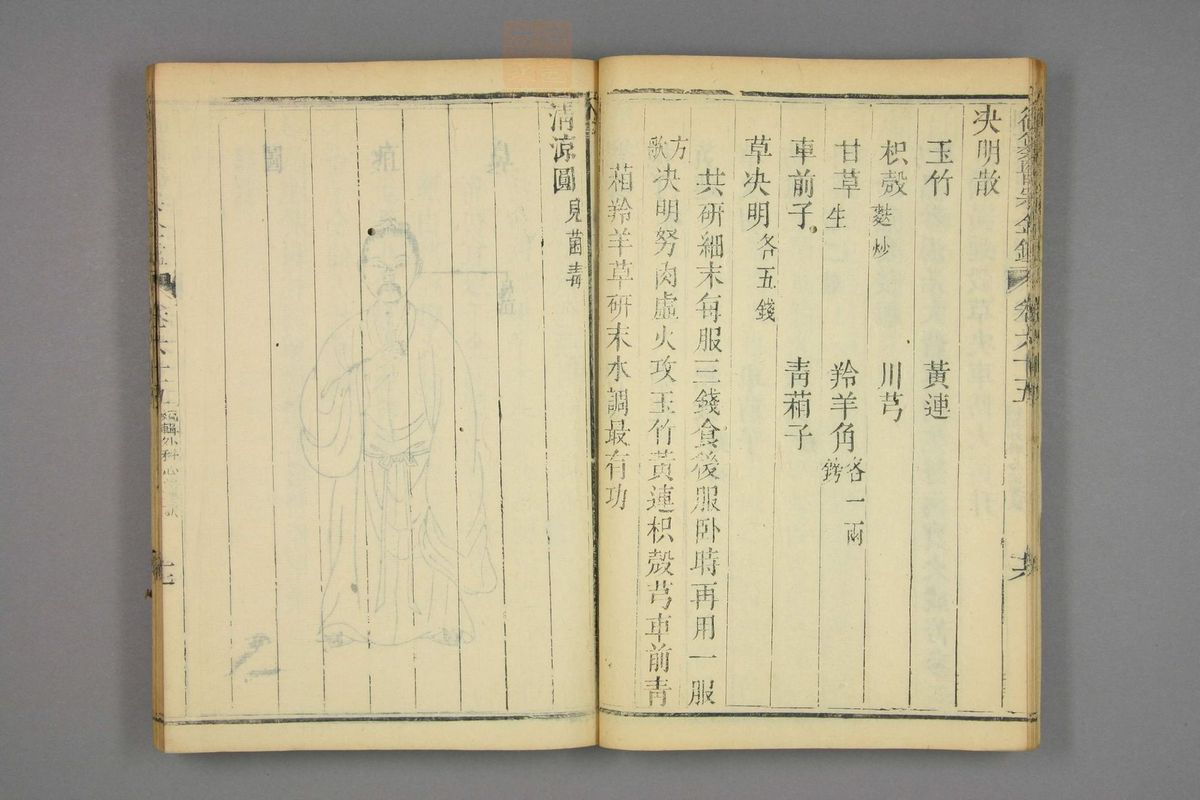 御纂醫宗金鑑 卷六十五
决明散
玉竹 黃連
枳殼麩炒 川芎
甘草生 羚羊角鎊各一兩
車前子 靑葙子
草决明各五錢
共研細末每服三錢食後服卧時再用一服
方歌 决明努肉虛火攻玉竹黃連枳殼芎車前靑
葙羚羊草研末水調最有功
淸涼圓見菌毒
卷六十五 編輯外科心